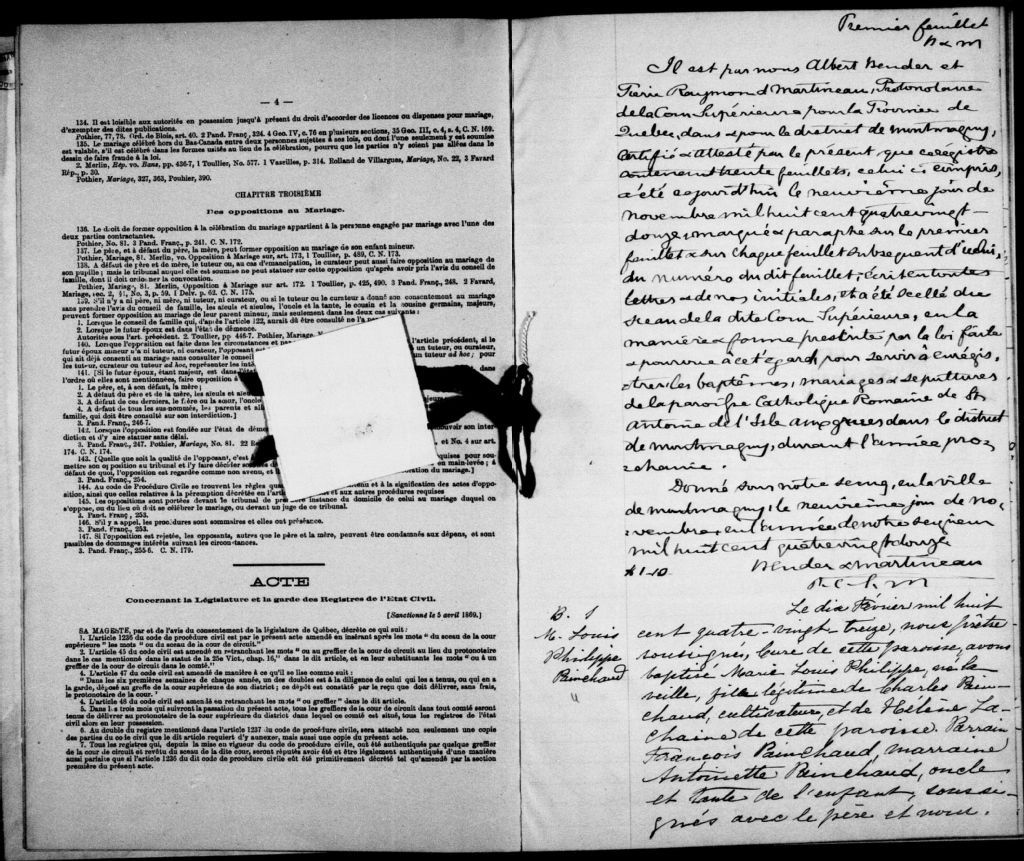 — 4 —
134. Il est loisible aux autorités en possession jusqu'à présent du droit d'accorder des licences ou dispenses pour mariage,
d'exempter des dites publications.
Pothier, 77, 78. Ord. de Blois, art. 40. 2 Pand. Franç., 324. 4 Geo. IV, c. 76 en plusieurs sections, 35 Geo. III, c. 4, s. 4, C. N. 169.
135. Le mariage célébré hors du Bas-Canada entre deux personnes sujettes à ses lois, ou dont l'une seulement y est soumise
est valable, s'il est célébré dans les formes usitées au lieu de la célébration, pourvu que les parties n'y soient pas allées dans le
dessin de faire fraude à la loi.
2. Merlin, Rép. vo. Bans, pp. 436-7, 1 Toullier, No. 577. 1 Vazeilles, p. 314. Rolland de Villargues, Mariage, No. 22, 3 Favard
Rép., p. 30.
Pothier, Mariage, 327, 363, Pouhier, 390.
CHAPITRE TROISIÈME
Des oppositions au Mariage.
136. Le droit de former opposition à la célébration du mariage appartient à la personne engagée par mariage avec l'une des
deux parties contractantes.
Pothier, No. 81. 3 Pand. Franç., p. 241. C. N. 172.
137. Le père, et à défaut du père, la mère, peut former opposition au mariage de son enfant mineur.
Pothier, Mariage, 81. Merlin, vo. Opposition à Mariage sur art. 173, 1 Toullier, p. 489, C. N. 173.
138. A défaut de père et de mère, le tuteur ou, au cas d'émancipation, le curateur peut aussi faire opposition au mariage de
son pupille ; mais le tribunal auquel elle est soumise ne peut statuer sur cette opposition qu'après avoir pris l'avis du conseil de
famille, dont il doit ordonner la convocation.
Pothier, Mariage, 81. Merlin, Opposition à Mariage sur art. 172. 1 Toullier, p. 425, 490. 3 Pand. Franç., 248. 2 Favard,
Mariage, sec. 2, §1, No. 3, p. 59. 1 Delv. p. 62. C. N. 175.
139. S'il n'y a ni père, ni mère, ni tuteur, ni curateur, ou si le tuteur ou le curateur a donné son consentement au mariage
sans prendre l'avis du conseil de famille, les aïeuls et aïeules, l'oncle et la tante, le cousin et la cousine germains, majeurs,
peuvent former opposition au mariage de leur parent mineur, mais seulement dans les deux cas suivants :
1. Lorsque le conseil de famille qui, d'après l'article 122, aurait dû être consulté ne l'a
2. Lorsque le futur époux est dans l'état de démence.
Autorités sous l'art. précédent. 2. Toullier, pp. 446-7. Pothier, Mariage,
140. Lorsque l'opposition est faite dans les circonstances et par l'article précédent, si le
futur époux mineur n'a ni tuteur, ni curateur, l'opposant un tuteur, ou curateur,
qui ait déjà consenti au mariage sans consulter le conseil tuteur ad hoc ; pour
les tuteur, curateur ou tuteur ad hoc, représenter les
141. [Si le futur époux, étant majeur, est dans dans
l'ordre où elles sont mentionnées, faire opposition à
1. Le père, et, à son défaut, la mère ;
2. A défaut du père et de la mère, les aïeuls et aïeules
3. A défaut de ces derniers, le frère ou la sœur, l'oncle
4. A défaut de tous les sus-nommés, les parents et
famille, qui doit être consulté sur son interdiction.]
3. Pand. Franç., 246-7.
142. Lorsque l'opposition est fondée sur l'état de son inter-
diction et d'y faire statuer sans délai.
3. Pand. Franç., 247. Pothier, Mariage, No. 81. 22 et No. 4 sur art.
174. C. N. 174.
143. [Quelle que soit la qualité de l'opposant, c'est pour sou-
mettre son opposition au tribunal et l'y faire décider en main-levée ; à
défaut de quoi, l'opposition est regardée comme non avenu, et du mariage.]
3. Pand. Franç., 254.
144. Au code de Procédure Civile se trouvent les règles et à la signification des actes d'oppo-
sition, ainsi que celles relatives à la péremption décrétée en l'article et aux autres procédures requises
145. Les oppositions sont portées devant le tribunal de première instance du domicile de celui au mariage duquel on
s'oppose, ou du lieu où doit se célébrer le mariage, ou devant un juge de ce tribunal.
3. Pand. Franç., 253.
146. S'il y a appel, les procédures sont sommaires et elles ont préséance.
3. Pand. Franç., 253.
147. Si l'opposition est rejetée, les opposants, autres que le père et la mère, peuvent être condamnés aux dépens, et sont
passibles de dommages intérêts suivant les circonstances.
3. Pand. Franç., 255-6. C. N. 179.
ACTE
Concernant la Législature et la garde des Registres de l'Etat Civil.
[Sanctionné le 5 avril 1869.]
SA MAGESTE, par et de l'avis du consentement de la législature de Québec, décrète ce qui suit :
1. L'article 1236 du code de procédure civile est par le présent acte amendé en insérant après les mots " du sceau de la cour
supérieure " les mots " ou du sceau de la cour de circuit."
2. L'article 45 du code civil est amendé en retranchant les mots " ou au greffier de la cour de circuit au lieu du protonotaire
dans le cas mentionné dans le statut de la 25e Vict, chap. 16," dans le dit article, et en leur substituants les mots " ou à un
greffier de la cour de circuit dans le comté."
4. L'article 47 du code civil est amendé de manière à ce qu'il se lise comme suit :
" Dans les six premières semaines de chaque année, un des doubles est à la diligence de celui qui les a tenus, ou qui en a
la garde, déposé au greffe de la cour supérieure de son district ; ce dépôt est constaté par le reçu que doit délivrer, sans frais,
le protonotaire de la cour."
4. L'article 48 du code civil est amendé en retranchant les mots " ou greffier " dans le dit article.
5. Dans les trois mois qui suivront la passation du présent acte, tous les greffiers de la cour de circuit dans tout comté seront
tenus de délivrer au protonotaire de la cour supérieure du district dans lequel ce comté est situé, tous les registres de l'état
civil alors en leur possession.
6. Au double du registre mentionné dans l'article 1237 du code de procédure civile, sera attaché non seulement une copie
des parties du code civil que le dit article requiert d'y annexer, mais aussi une copie du présent acte.
7. Tous les registres qui, depuis la mise en vigueur du code de procédure civile, ont été authentiqués par quelque greffier
de la cour de circuit et revêtu du sceau de la dite cour, seront réputés avoir été et être légalement authentiqués d'une manière
aussi parfaite que si l'article 1236 du dit code de procédure civile eût été primitivement décrété tel qu'amendé par la section
première du présent acte.
Premier feuillet
B & M
Il est par nous Albert Bender et
Pierre Raymond Martineau, Protonotaire
de la Cour Supérieure pour la Province de
Québec, dans & pour le district de Montmagny,
certifié & attesté par le présent, que ce régistre
contenant trente feuillets, celui ci compris,
a été aujourd'hui le neuvième jour de
novembre mil huit cent quatre vingt-
douze, marqué & paraphé sur le premier
feuillet & sur chaque feuillet subséquent d'icelui,
du numéro du dit feuillet, écrit en toutes
lettres & de nos initiales, et a été scellé du
sceau de la dite Cour Supérieure, en la
manière & forme prescrite par la loi faite
& pourvue à cet egard, pour servir à enrégis-
trer les baptêmes, mariages & sépultures
de la paroisse Catholique Romaine de St
Antoine de l'Isle aux grues dans le district
de Montmagny, durant l'année pro-
chaine.
Donné sous notre seing, en la ville
de Montmagny, le neuvième jour de no-
vembre, en l'année de notre seigneur
mil huit cent quatre vingt douze
Bender & Martineau
$1-10 P. C. S. M
B. 1
M. Louis
Philippe
Painchaud
"
Le dix Février mil huit
cent quatre-vingt-treize, nous prêtre
soussigné, Curé de cette paroisse, avons
baptisé Marie Louis Philippe, né la
veille, fils légitime de Charles Pain-
chaud, cultivateur, et de Hélène La-
chaine de cette paroisse. Parrain
François Painchaud, marraine
Antoinette Painchaud, oncle
et tante de l'enfant, soussi-
gnés avec le père et nous.